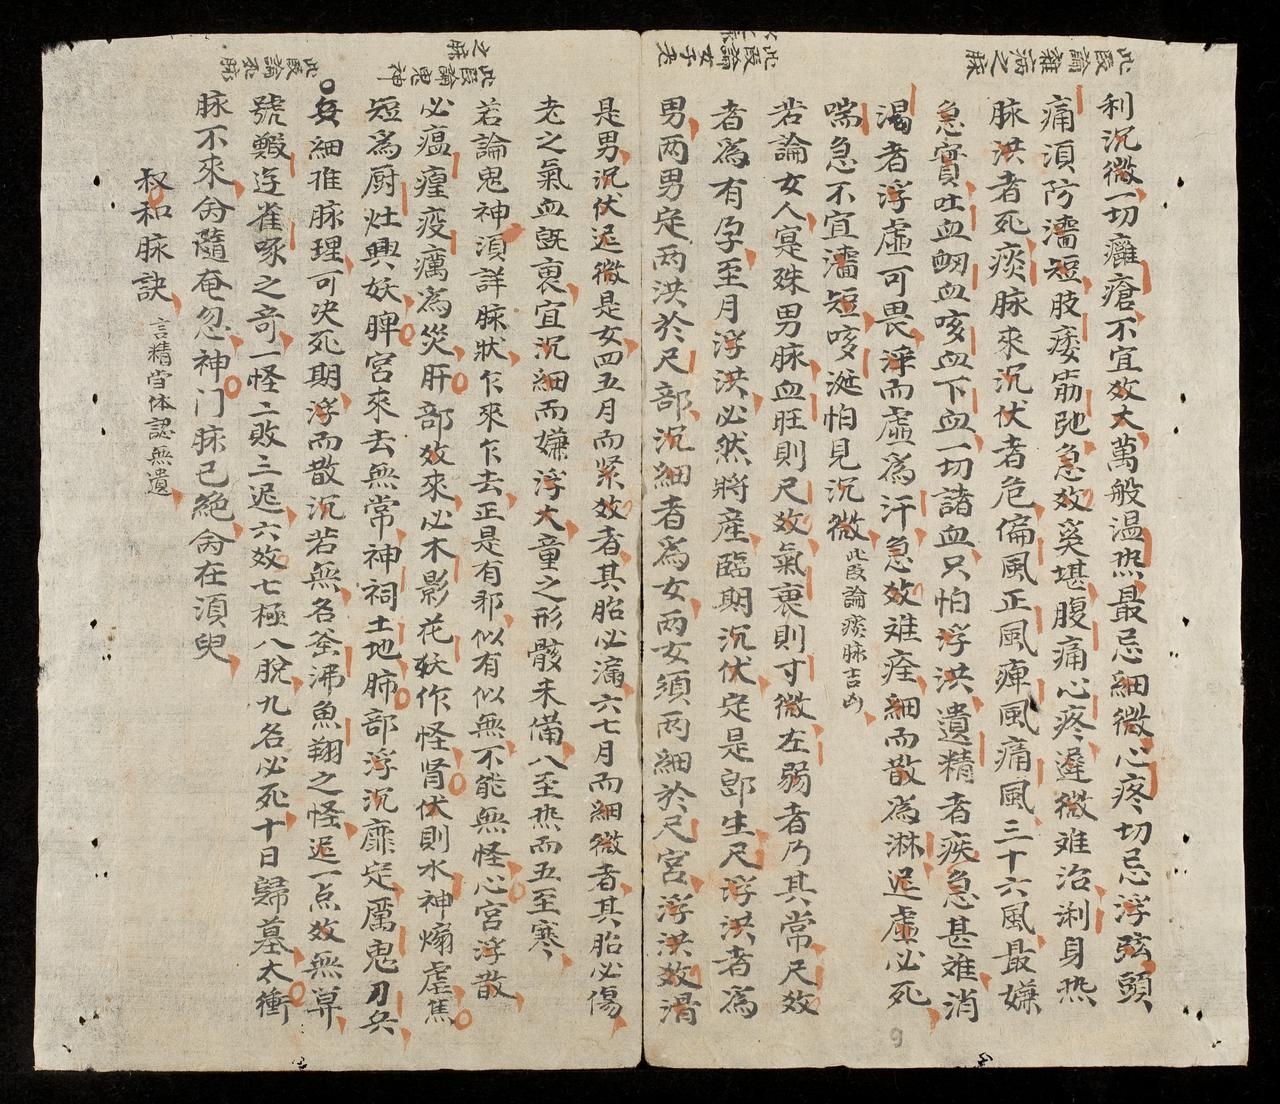 此段論雜病之脉
利沉微一切癰瘡不宜效大萬般温热最忌細微心疼切忌浮弦頭
痛須防濇短肢痿筋弛急效奚堪腹痛心疼遲微难治泄身热
脉洪者死痰脉來沉伏者危偏風正風痺風痛風三十六風最嫌
急實吐血衂血咳血下血一切諸血只怕浮洪遺精者疾急甚难消
渴者浮虛可畏浮而虛為汗急效难痊細而散為淋迟虛必死
喘急不宜濇短咳涎怕見沉微
此段論痰脉吉凶
此段論女子尺
若論女人寔殊男脉血旺則尺效氣衰則寸微左弱者乃其常尺效
者為有孕至月浮洪必然將産臨期沉伏定是郎生尺浮洪者為
男两男定两洪於尺部沉細者為女两女須两細於尺宮浮洪效滑
是男沉伏迟微是女四五月而紧效者其胎必漏六七月而細微者其胎必傷
老之氣血既衰宜沉細而嫌浮大童之形骸未備八至热而五至寒
此段論鬼神之脉
若論鬼神須詳脉狀乍來乍去正是有邪似有似無不能無怪心宮浮散
必瘟瘟疫癘為災肝部效來必木影花妖作怪肾伏則水神㷌虛焦
短為厨灶興妖脾宮來去無常神祠土地肺部浮沉靡定厲鬼刀兵
此段論死脉
每細推脉理可决死期浮而散沉若無名釜沸魚翔之怪迟一点效無算
號蝦逰雀啄之竒一怪二敗三迟六效七極八脫九名必死十日歸墓太衝
脉不來命隨奄忽神门脉已絕命在湏臾
叔和脉訣
言精當体認無遺
9